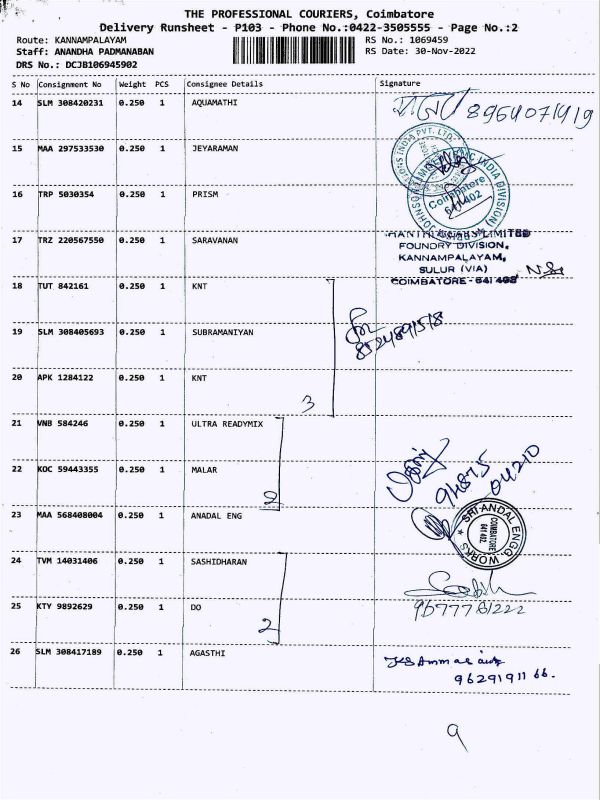 THE PROFESSIONAL COURIERS, Coimbatore
Delivery Runsheet - P103 - Phone No.:0422-3505555 - Page No.:2
Route: KANNAMPALAYAM RS No.: 1069459
Staff: ANANDHA PADMANABAN RS Date: 30-Nov-2022
DRS No.: DCJB106945902
S No Consignment No Weight PCS Consignee Details Signature
14 SLM 308420231 0.250 1 AQUAMATHI
15 MAA 297533530 0.250 1 JEYARAMAN
16 TRP 5030354 0.250 1 PRISM
Coimbatore
641 402
17 TRZ 220567550 0.250 1 SARAVANAN
LIMITED
FOUNDRY DIVISION,
KANNAMPALAYAM,
SULUR (VIA)
COIMBATORE - 641 402
18 TUT 842161 0.250 1 KNT
19 SLM 308405693 0.250 1 SUBRAMANIYAN
20 APK 1284122 0.250 1 KNT
3
21 VNB 584246 0.250 1 ULTRA READYMIX
22 KOC 59443355 0.250 1 MALAR
2
94875
04210
23 MAA 568408004 0.250 1 ANADAL ENG
SRI ANDAL ENGG. WORKS
COIMBATORE
641 402
24 TVM 14031406 0.250 1 SASHIDHARAN
25 KTY 9892629 0.250 1 DO
2
26 SLM 308417189 0.250 1 AGASTHI
9629191166.
9